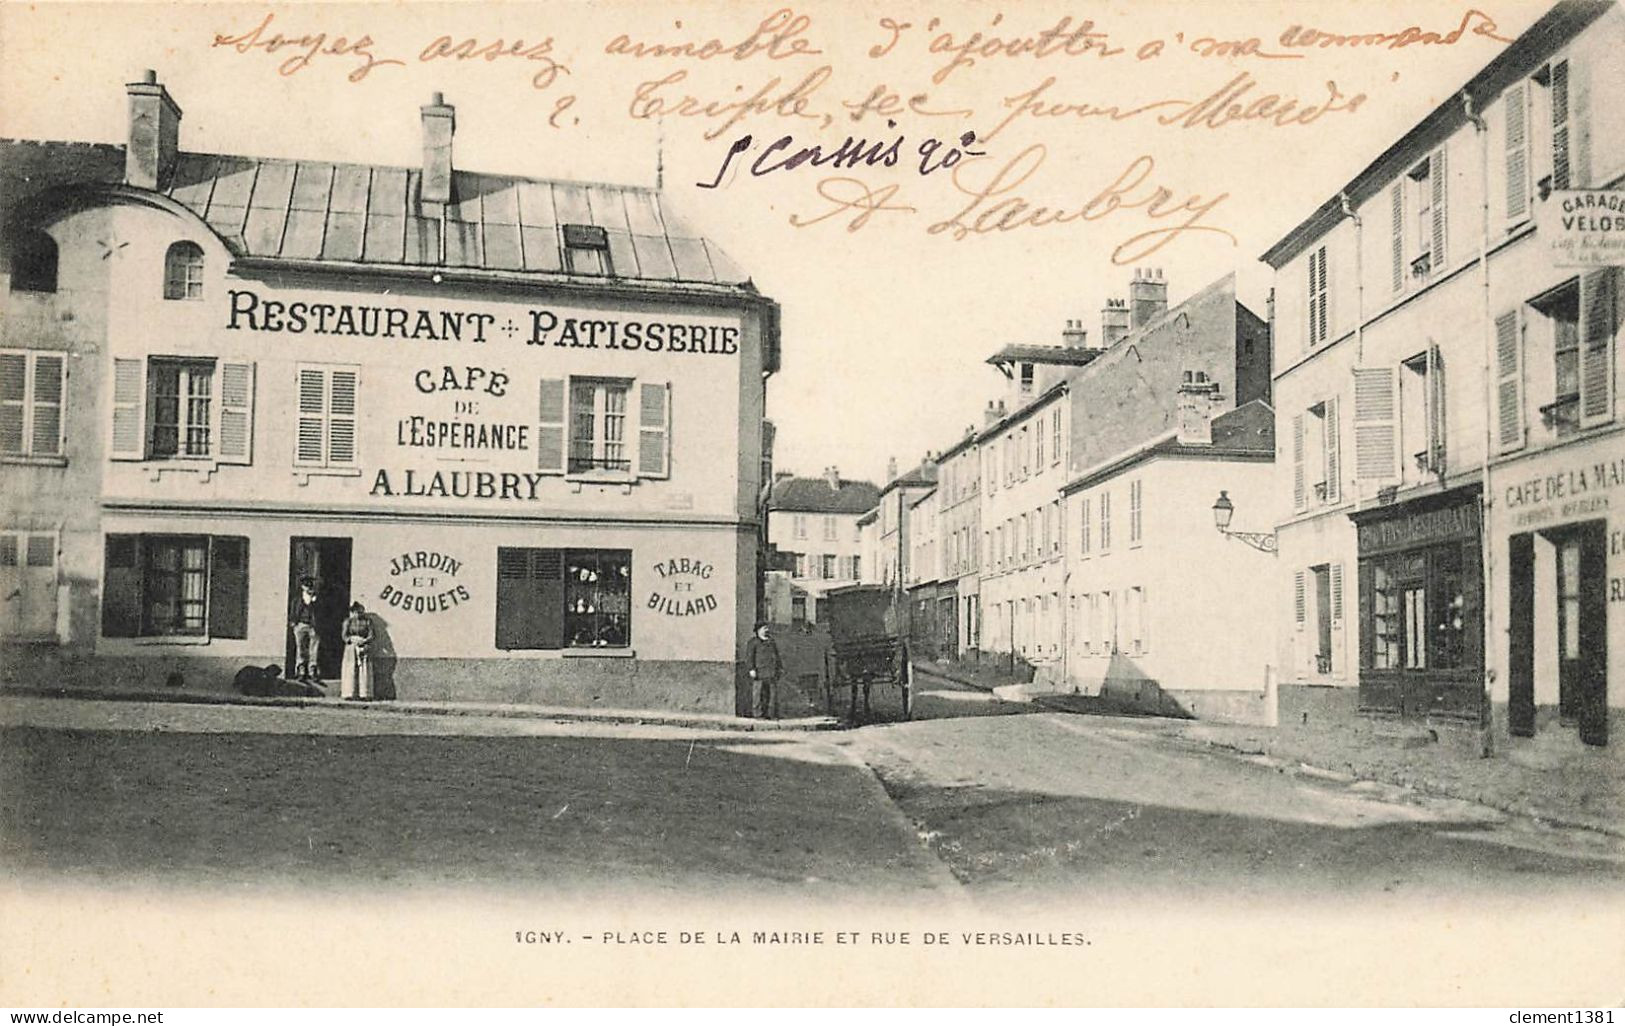 Soyez assez aimable d'ajoutter à ma commande
2. Triple, sec pour Mardi
5 Cassis 90
A Laubry
RESTAURANT + PATISSERIE
CAFÉ
DE
L'ESPÉRANCE
A. LAUBRY
JARDIN
ET
BOSQUETS
TABAC
ET
BILLARD
GARAGE
VELOS
CAFÉ DE LA MAI
IGNY. - PLACE DE LA MAIRIE ET RUE DE VERSAILLES.
clement1381